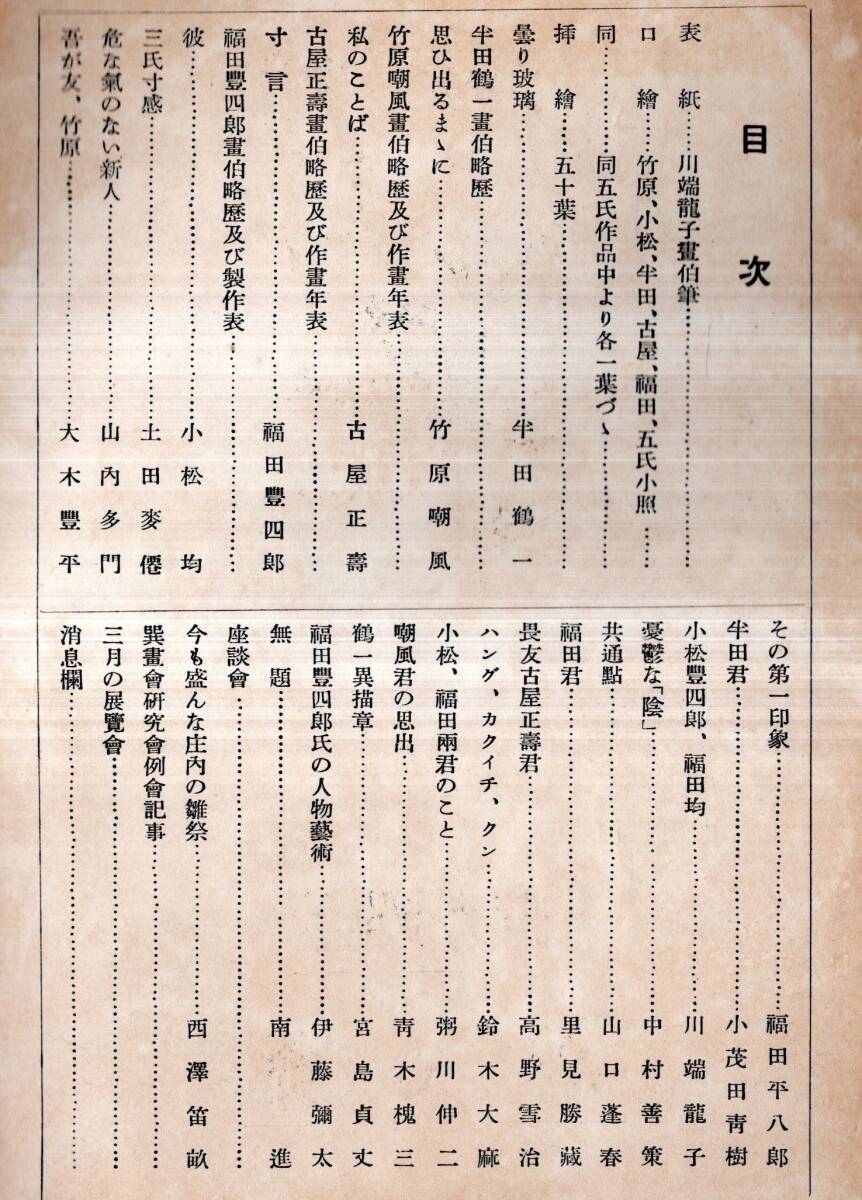 目次
表紙……川端龍子畫伯筆…………
口繪……竹原、小松、半田、古屋、福田、五氏小照……
同…………同五氏作品中より各一葉づゝ…………
挿繪……五十葉…………
曇り玻璃…………半田鶴一
半田鶴一畫伯略歷…………
思ひ出るまゝに…………竹原嘲風
竹原嘲風畫伯略歷及び作畫年表…………
私のことば…………古屋正壽
古屋正壽畫伯略歷及び作畫年表…………
寸言…………福田豐四郎
福田豐四郎畫伯略歷及び製作表…………
彼…………小松均
三氏寸感…………土田麥僊
危な氣のない新人…………山內多門
吾が友、竹原…………大木豐平
その第一印象…………福田平八郎
半田君…………小茂田靑樹
小松豐四郎、福田均…………川端龍子
憂鬱な「陰」…………中村善策
共通點…………山口蓬春
福田君…………里見勝藏
畏友古屋正壽君…………高野雪治
ハング、カクイチ、クン…………鈴木大麻
小松、福田兩君のこと…………粥川伸二
嘲風君の思出…………靑木槐三
鶴一異描章…………宮島貞丈
福田豐四郎氏の人物藝術…………伊藤彌太
無題…………南進
座談會…………
今も盛んな庄內の雛祭…………西澤笛畝
巽畫會硏究會例會記事…………
三月の展覽會…………
消息欄…………